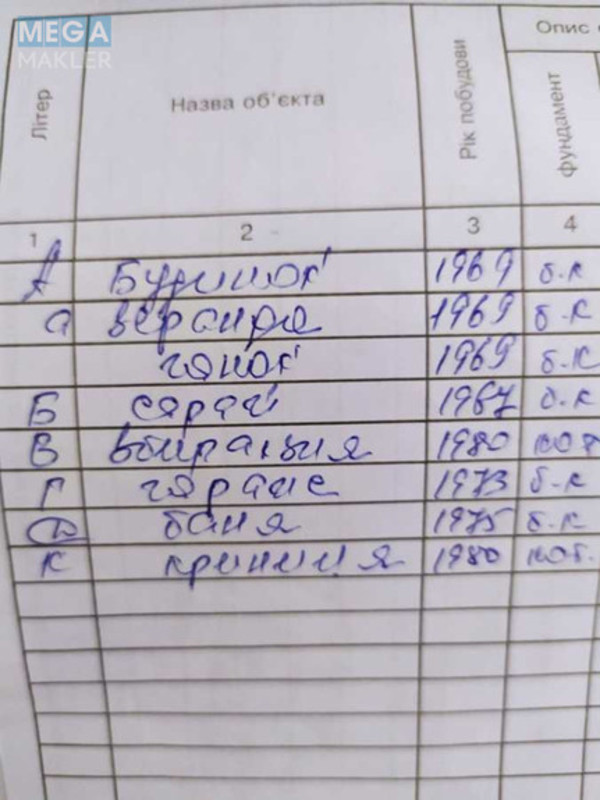 MEGA
MAKLER
Літер
Назва об'єкта
Рік побудови
Опис
фундамент
1 2 3 4
А Будинок 1969 б.к
а веранда 1969 б.к
ганок 1969 б.к
Б сарай 1967 б.к
В вбиральня 1980 кот
Г гараж 1973 б.к
баня 1975 б.к
К криниця 1980 кот.